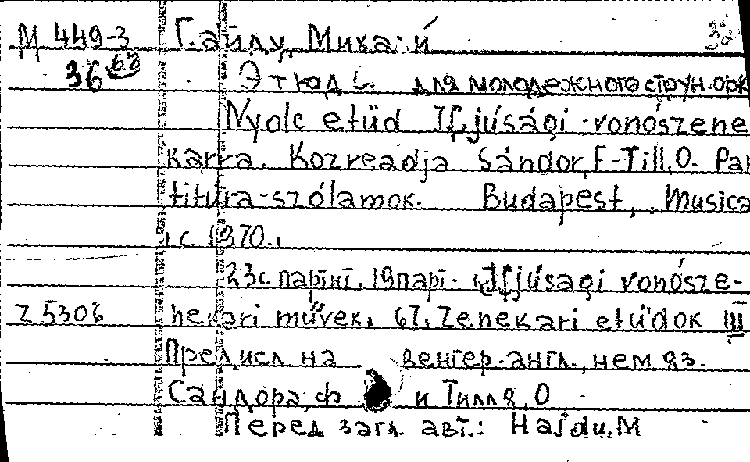 М 449-3 Гайду, Михай 38
36 68 Этюды для молодежного струн. орк
Nyolc etüd Ifjúsági vonószene
karra. Közreadja Sándor, F-Till, O. Par
titúra-szólamok. Budapest, Musica
, c 1970.
23с. партит., 19парт. Ifjúsagi vonósze-
Z 5306 nekari művek, 67. Zenekari etűdok III
Предисл на венгер. англ., нем яз.
Сандора, Ф и Тилля, О
Перед загл. авт.: Hajdu, M